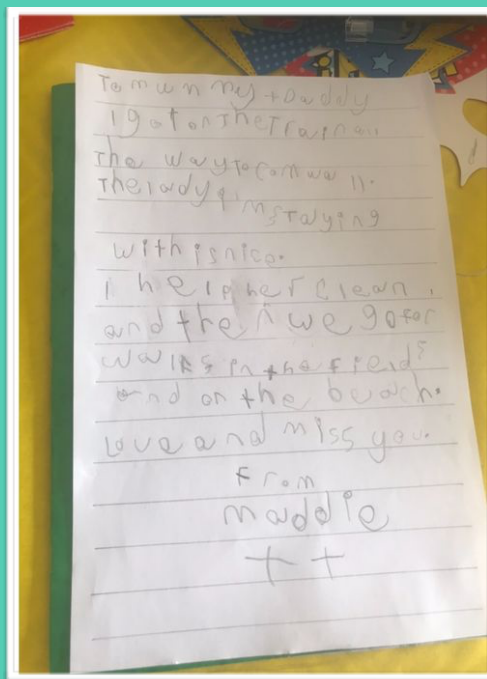 To mummy + Daddy
I got on the Train all
The way to Cornwall.
The lady I'm staying
with is nice.
I help her clean.
and then we go for
walks in the fields
and on the beach.
Love and miss you.
From
maddie
++